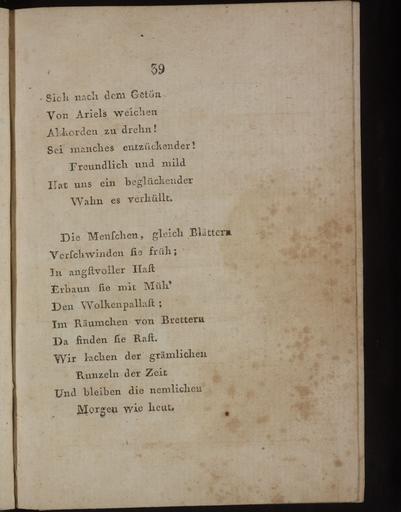 39
Sich nach dem Getön
Von Ariels weichen
Akkorden zu drehn!
Sei manches entzückender!
Freundlich und mild
Hat uns ein beglückender
Wahn es verhüllt.
Die Menſchen, gleich Blättern
Verſchwinden ſie früh;
In angſtvoller Haſt
Erbaun ſie mit Müh'
Den Wolkenpallaſt;
Im Räumchen von Brettern
Da finden ſie Raſt.
Wir lachen der grämlichen
Runzeln der Zeit
Und bleiben die nemlichen
Morgen wie heut.